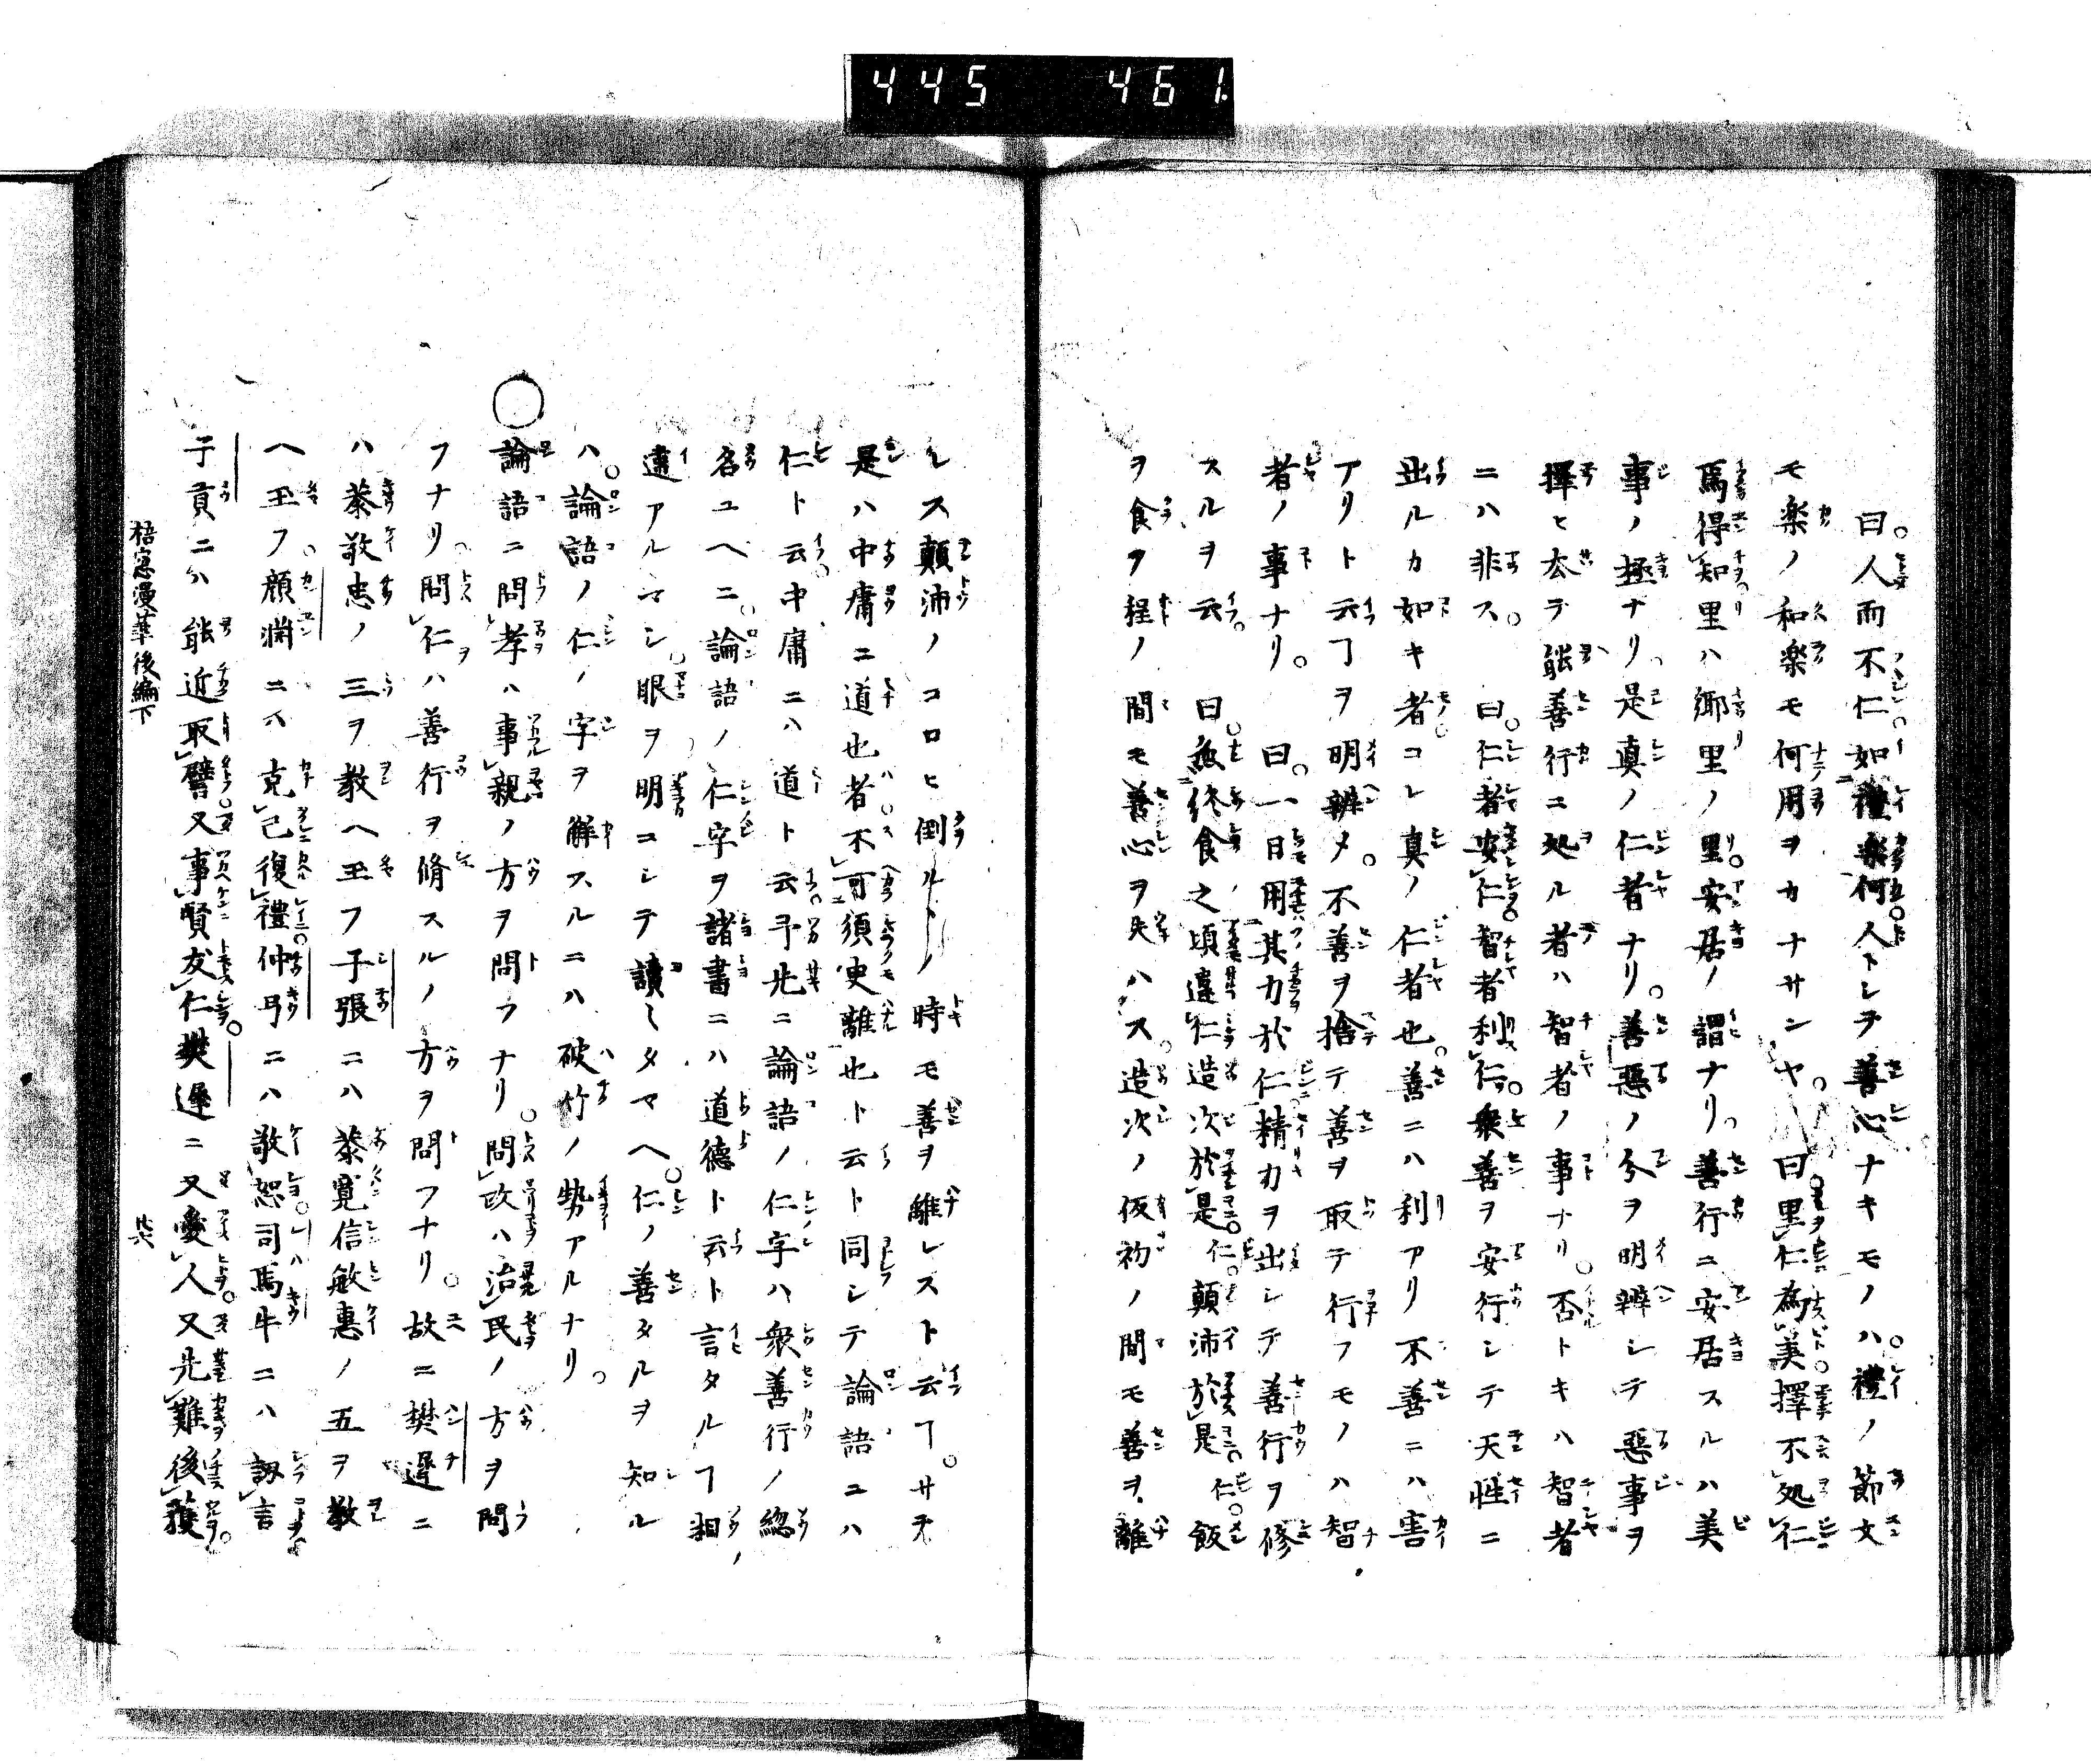 445 461
曰。人而不仁如禮樂何。人トシテ善心ナキモノハ。禮ノ節文
モ楽ノ和楽モ何用ヲカナサンヤ。曰里仁為美。擇不処仁
焉得知。里ハ郷里ノ里。安居ノ謂ナリ。善行ニ安居スルハ美
事ノ極ナリ。是真ノ仁者ナリ。善惡ノ分ヲ明辨シテ惡事ヲ
擇ヒ去テ能善行ニ処ル者ハ智者ノ事ナリ。否トキハ智者
ニハ非ス。曰。仁者安仁。智者利仁。衆善ヲ安行シテ天性ニ
出ルカ如キ者。コレ真ノ仁者也。善ニハ利アリ不善ニハ害
アリト云ヿヲ明辨メ。不善ヲ捨テ善ヲ取テ行フモノハ智
者ノ事ナリ。曰。一日用其力於仁。精力ヲ出シテ善行ヲ修
スルヲ云。曰。無終食之頃違仁。造次於是。仁。顛沛於是。仁。飯
ヲ食フ程ノ間モ善心ヲ失ハス。造次ノ仮初ノ間モ善ヲ離
レス顛沛ノコロヒ倒ルヽノ時モ善ヲ離レスト云ヿ。サテ
是ハ中庸ニ道也者。不可須臾離也ト云ト同シテ論語ニハ
仁ト云。中庸ニハ道ト云。予先ニ論語ノ仁字ハ衆善行ノ総
名ユヘニ。論語ノ仁字ヲ諸書ニハ道徳ト云ト言タルヿ相
違アルマシ。眼ヲ明ニシテ讀ミタマヘ。仁ノ善タルヲ知ル
ハ。論語ノ仁ノ字ヲ解スルニハ破竹ノ勢アルナリ。
○論語ニ問孝ハ事親ノ方ヲ問フナリ。問政ハ治民ノ方ヲ問
フナリ。問仁ハ善行ヲ脩スルノ方ヲ問フナリ。故ニ樊遲ニ
ハ恭敬忠ノ三ヲ教ヘ玉フ子張ニハ恭寛信敏惠ノ五ヲ教
ヘ玉フ。顔淵ニハ克己復禮。仲弓ニハ敬恕。司馬牛ニハ訒言
子貢ニハ能近取譬。又事賢友仁。樊遲ニ又愛人。又先難後獲。
梧窓漫筆後編下
廿六